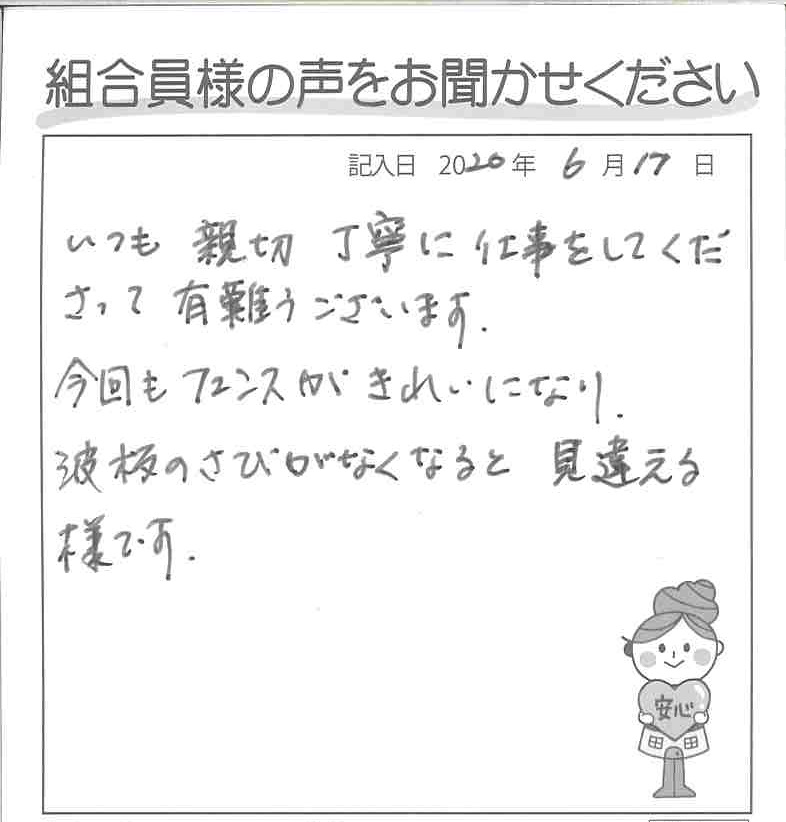 組合員様の声をお聞かせください
記入日 2020年 6月17日
いつも 親切 丁寧に 仕事をしてくだ
さって 有難うございます.
今回も フェンスが きれいになり.
波板のさびがなくなると 見違える
様です.
安心